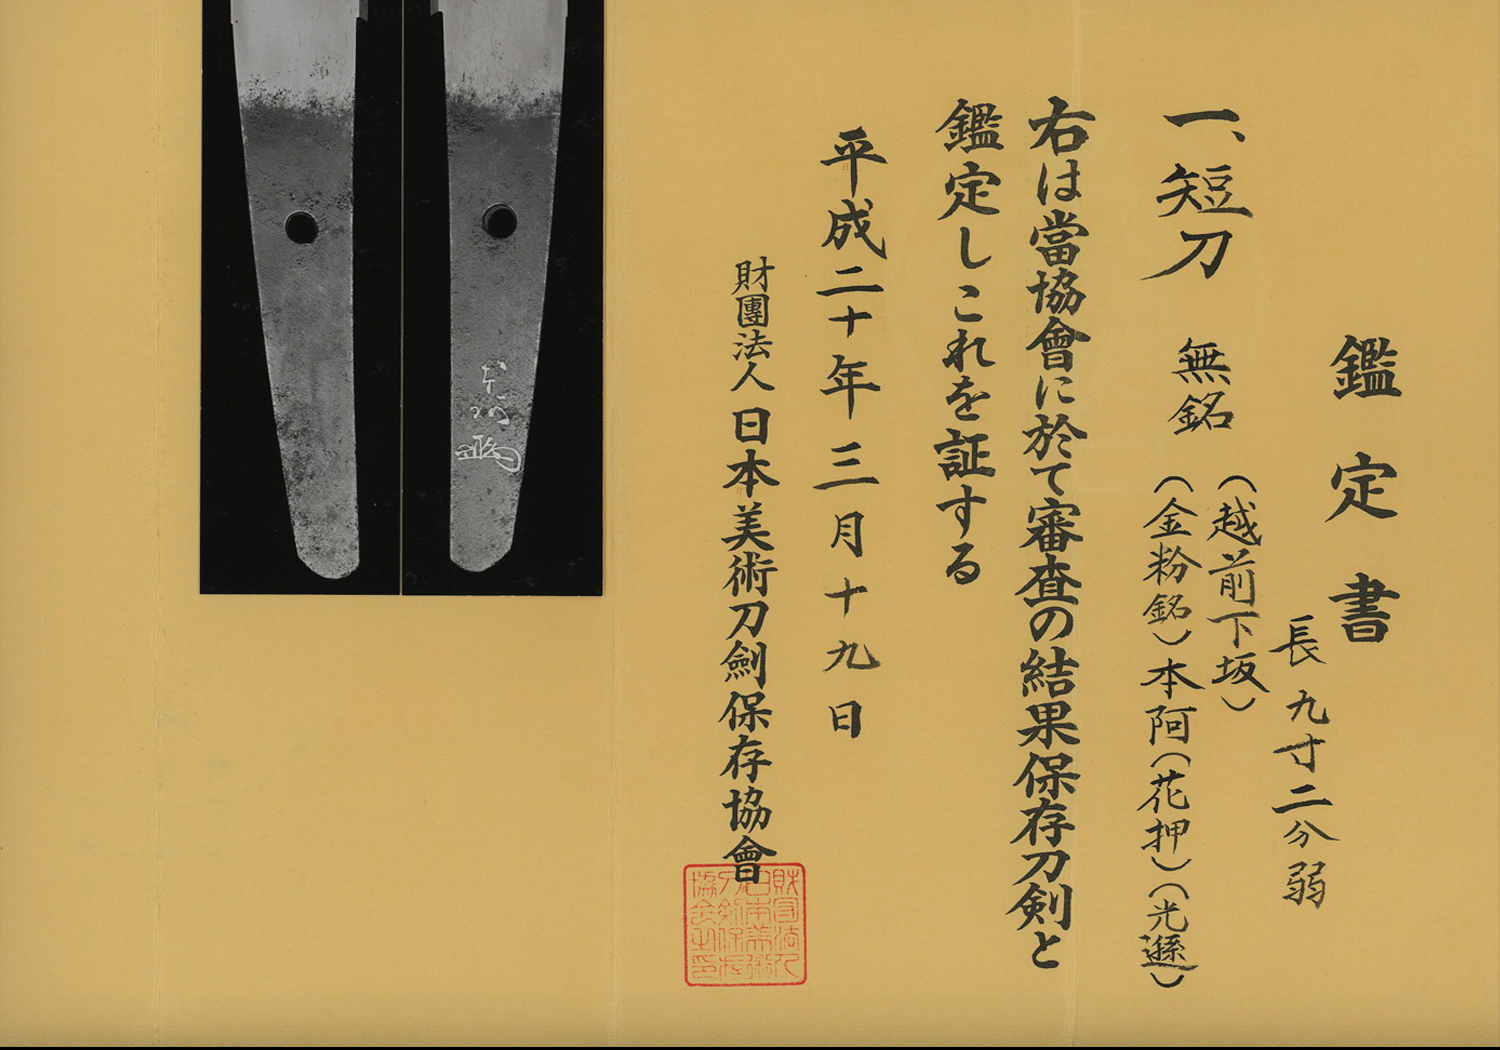 鑑定書
長九寸二分弱
一、短刀 無銘 (越前下坂)
(金粉銘)本阿(花押)(光遜)
右は當協會に於て審査の結果保存刀剣と
鑑定しこれを証する
平成二十年三月十九日
財團法人日本美術刀劍保存協會
本阿